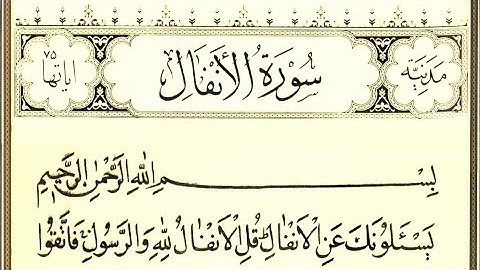 مَدَنِيَّة سُورَةُ الْأَنْفَالِ اٰيَاتُهَا ٧٥
بِسْمِ اللّٰهِ الرَّحْمٰنِ الرَّحٖيمِ
يَسْـَٔلُونَكَ عَنِ الْاَنْفَالِۜ قُلِ الْاَنْفَالُ لِلّٰهِ وَالرَّسُولِۚ فَاتَّقُوا